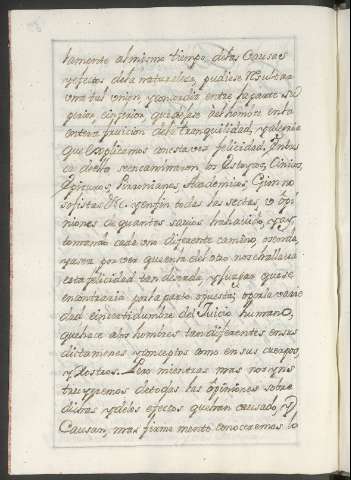 tamente al mismo tiempo de las Causas
y efectos de la naturaleza, pudiese resultar
una tal union, y concordia entre la parte su
perior, e inferior que dejase al hombre en la
entera fruicion de la tranquilidad, y alegria
que explicamos con esta voz felicidad. En bus
ca de ella se encaminaron los Estoycos, Cinicos,
Epicuros, Pirronianos, Academicos, Gimno
sofistas &c. y en fin todas las sectas, u opi
niones de quantos savios ha havido, y ay,
tomando cada una diferente camino, o senda,
ya sea por ver que en la del otro no se hallava
esta felicidad tan deseada, y juzgar que se
encontraria por la parte opuesta; o por la varie
dad e incertidumbre del Juicio humano,
que hace a los hombres tan diferentes en sus
dictamenes, y conceptos como en sus cuerpos,
y Rostros. Pero mientras mas nos yns
truyremos de todas las opiniones sobre
dichas y de los efectos que han causado, y
Causan, mas firme mente conoceremos lo